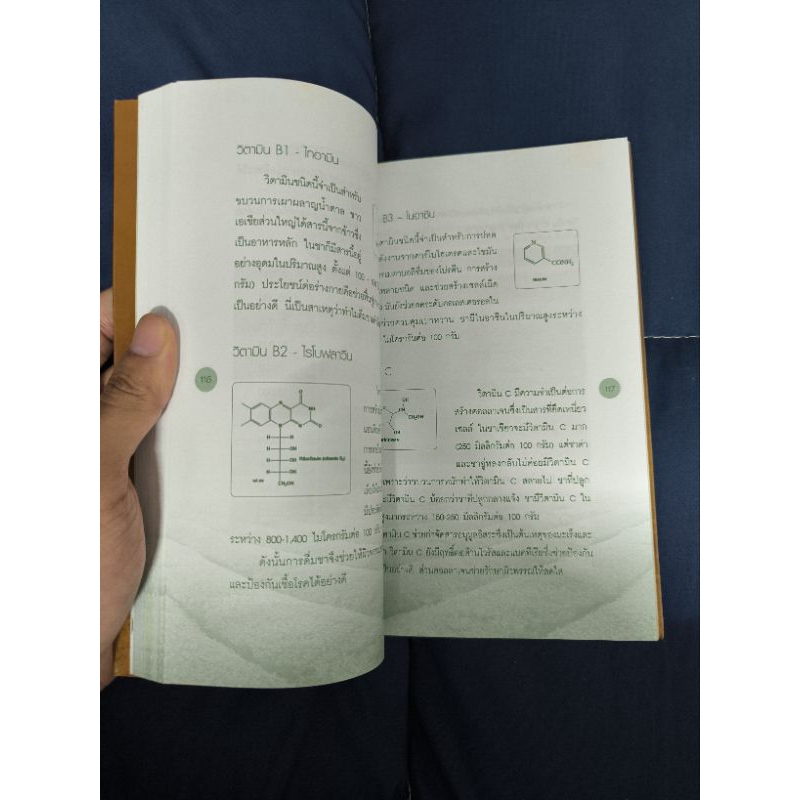 วิตามิน B1 - ไทอามิน
วิตามินชนิดนี้จำเป็นสำหรับ
ขบวนการเผาผลาญน้ำตาล ชาว
เอเชียส่วนใหญ่ได้สารนี้จากข้าวซึ่ง
เป็นอาหารหลัก ในชาก็มีสารนี้อยู่
อย่างอุดมในปริมาณสูง ตั้งแต่ 100 -
กรัม) ประโยชน์ต่อร่างกายคือช่วย
เป็นอย่างดี นี่เป็นสาเหตุว่าทำไม
วิตามิน B2 - ไรโบฟลาวิน
116
CH₂OH
ระหว่าง 800-1,400 ไมโครกรัมต่อ 100
ดังนั้นการดื่มชาจึงช่วยให้
และป้องกันเชื้อโรคได้อย่างดี
B3 - ไนอาซิน
ตามินชนิดนี้จำเป็นสำหรับการปลด
ลังงานจากคาร์โบไฮเดรตและไขมัน
เมตาบอลิซึมของโปรตีน การสร้าง
หลายชนิด และช่วยสร้างเซลล์เม็ด
มันยังช่วยลดระดับคอเลสเตอรอลใน
ช่วยควบคุมเบาหวาน ชามีไนอาซินในปริมาณสูงระหว่าง
ไมโครกรัมต่อ 100 กรัม
N
CONH₂
C
OH
CH₂OH
วิตามิน C มีความจำเป็นต่อการ
สร้างคอลลาเจนซึ่งเป็นสารที่ยึดเหนี่ยว
เซลล์ ในชาเขียวจะมีวิตามิน C มาก
(250 มิลลิกรัมต่อ 100 กรัม) แต่ชาดำ
และชาอู่หลงกลับไม่ค่อยมีวิตามิน C
เพราะว่าขบวนการหมักทำให้วิตามิน C สลายไป ชาที่ปลูก
มีวิตามิน C น้อยกว่าชาที่ปลูกกลางแจ้ง ชามีวิตามิน C ใน
ระหว่าง 150-250 มิลลิกรัมต่อ 100 กรัม
ตามิน C ช่วยกำจัดสารอนุมูลอิสระซึ่งเป็นต้นเหตุของมะเร็งและ
วิตามิน C ยังมีฤทธิ์ต่อต้านไวรัสและแบคทีเรียซึ่งช่วยป้องกัน
เป็นอย่างดี ส่วนคอลลาเจนช่วยรักษาผิวพรรณให้สดใส
117